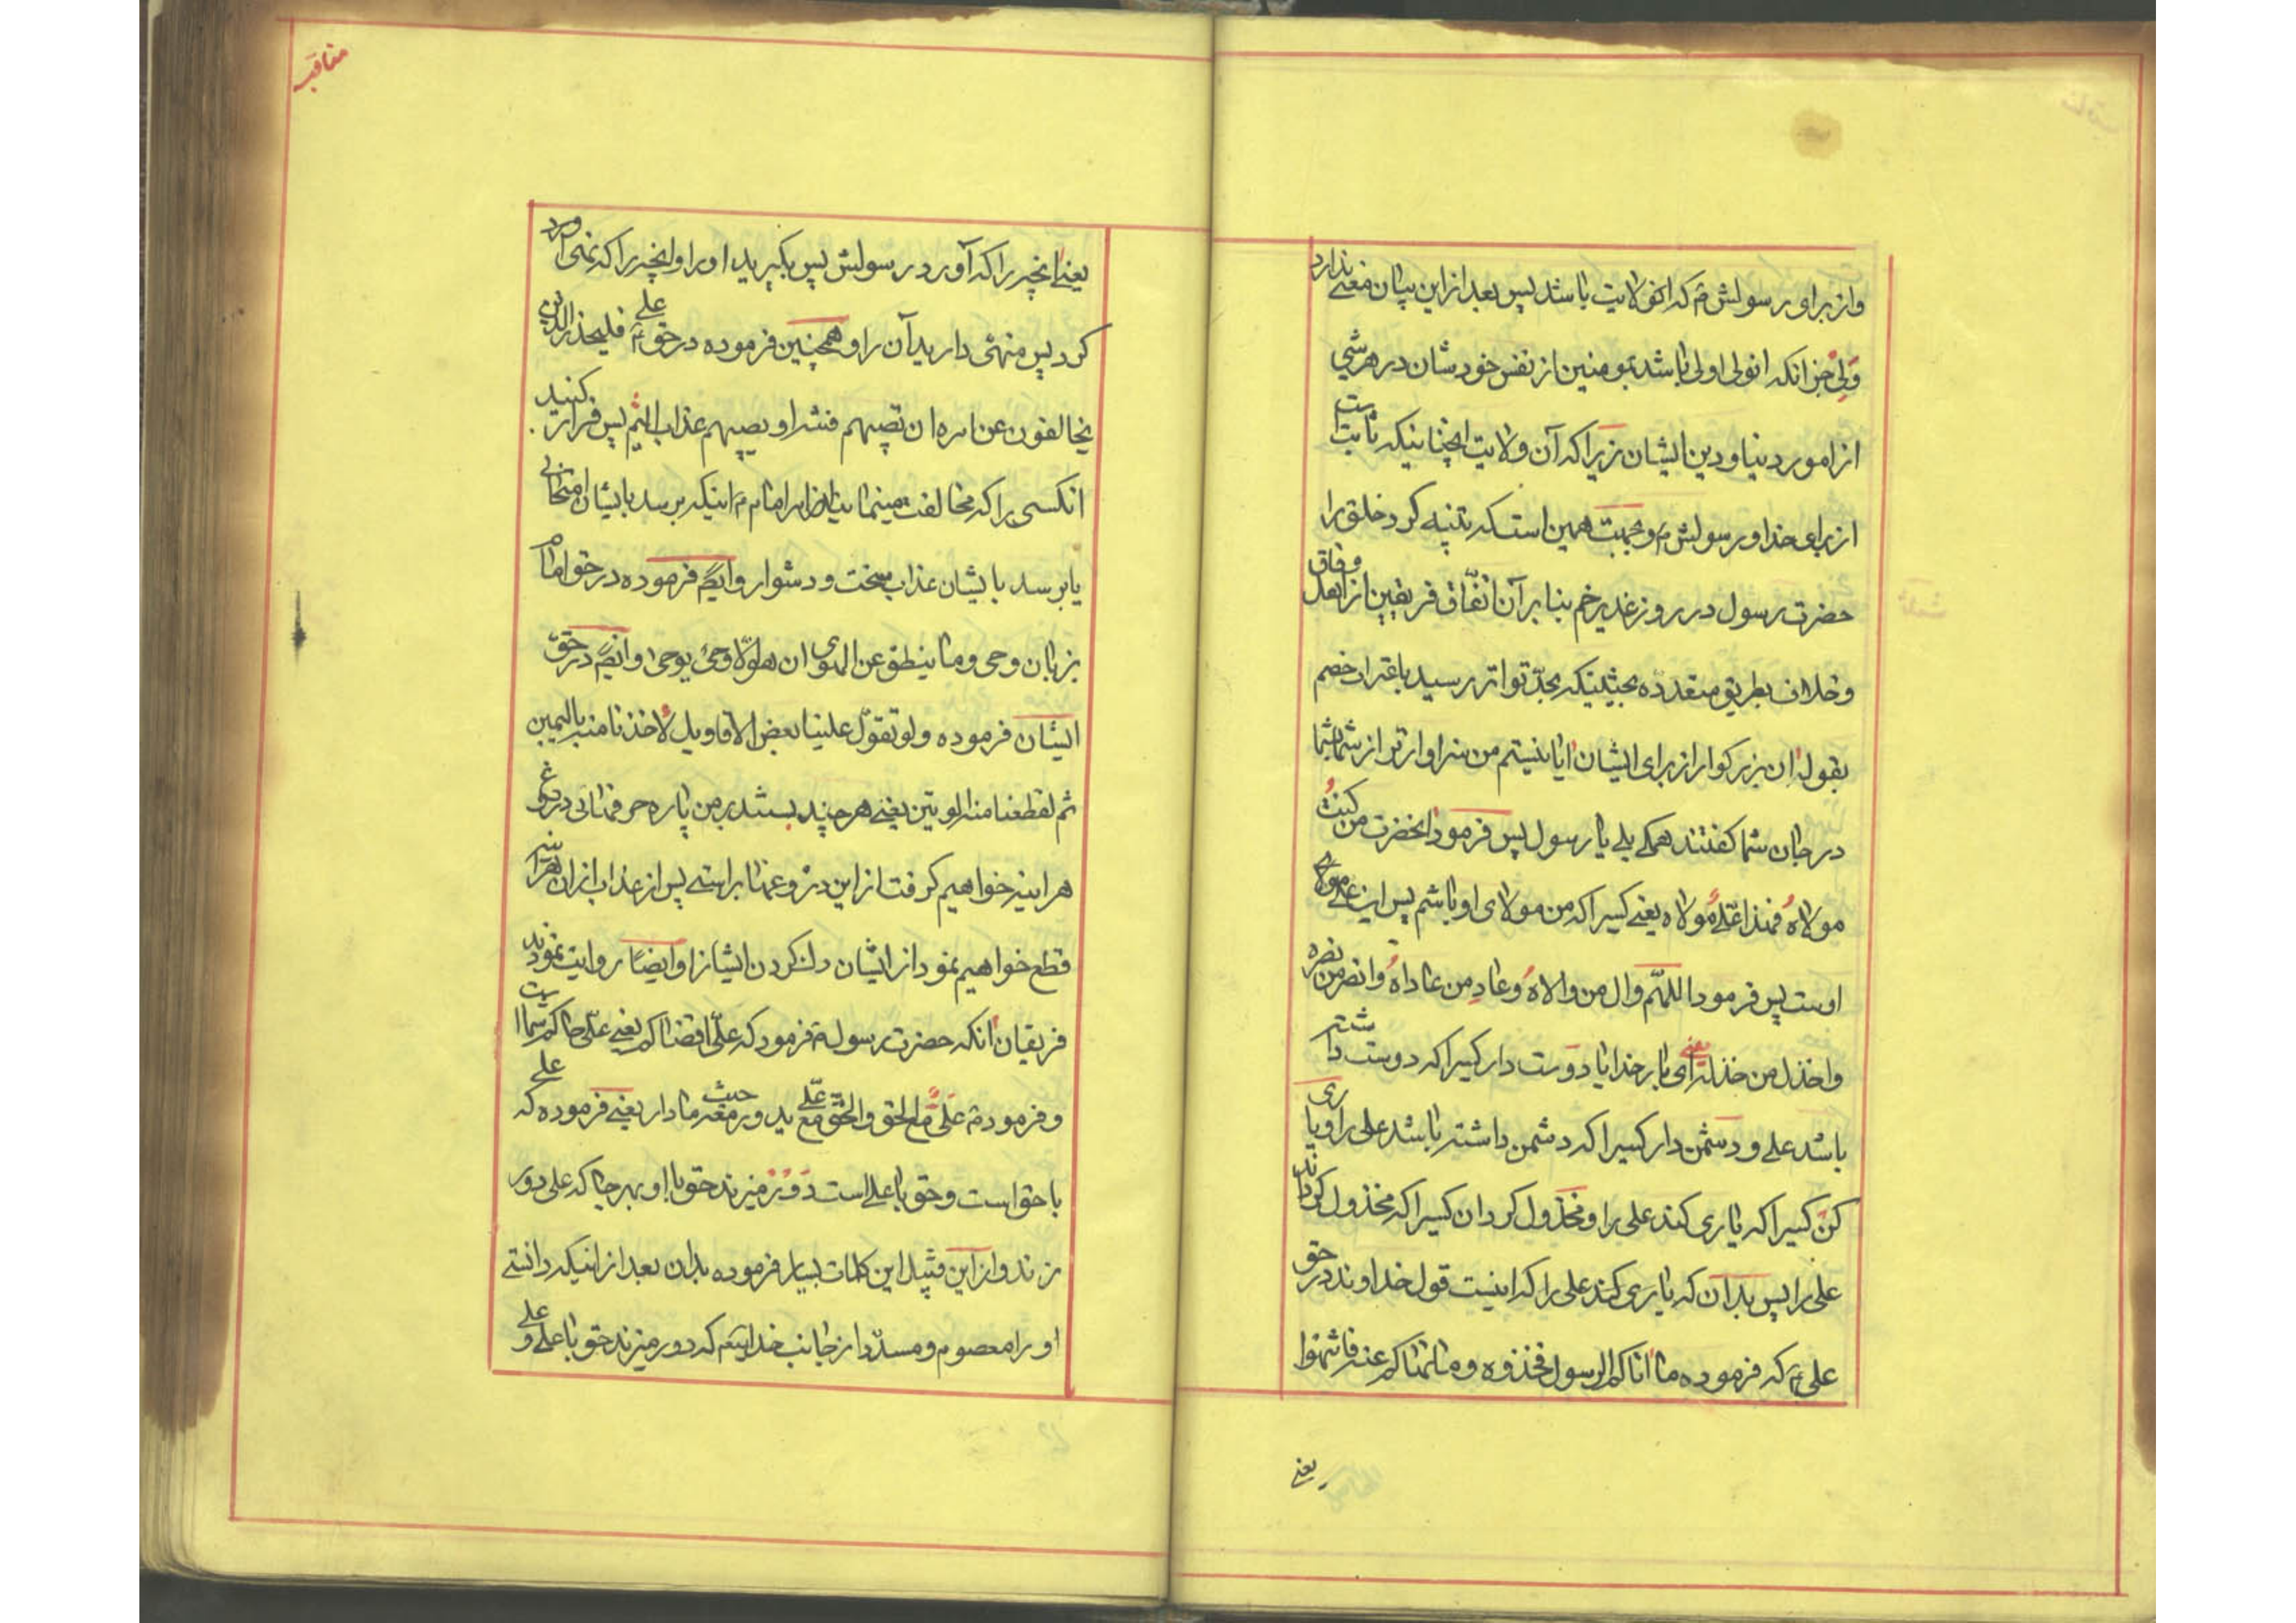 و از برای او رسولش م که انولایت باشد پس بعد از این بیان معنی ندارد
ولی جز انکه انولی اولی باشد بمومنین از نفس خودشان در هر شیی
از امور دنیا و دین ایشان زیرا که آن ولایت انچنانیکه ثابت است
از برای خدا و رسولش م و بجهت همین است که تنبیه کرد خلق را
حضرت رسول در روز غدیر خم بنا بر آن اتفاق فریقین از اهل وفاق
و خلاف بطریق متعدده بحیثیتیکه بحد تواتر رسید باعتراف خصم
بقوله ان بزرکوار از برای ایشان ایا نیستم من سزاوارتر از شما بشما
در جان شما کفتند همکی بلی یا رسول پس فرمود انحضرت من کنت
مولاه فهذا علی مولاه یعنی کسیرا که من مولای او باشم پس این علی مولای
اوست پس فرمود اللهم وال من والاه و عاد من عاداه وانصر من نصره
واخذل من خذله یعنی ای بار خدایا دوست دار کسیرا که دوست داشته
باشد علی و دشمن دار کسیرا که دشمن داشته باشد علی را و یاری
کن کسیرا که یاری کند علی را و مخذول کردان کسیرا که مخذول کرداند
علی را پس بدان که یاری کند علی را که اینست قول خداوند در حق
علی ع که فرموده ما اتاکم الرسول فخذوه و ما نهاکم عنه فانتهوا
یعنی
مناقب
یعنی انچه را که آورد رسولش پس بکیرید او را و انچه را که نهی
کرد پس منهی دارید آن را و همچنین فرموده در حق علی ع فلیحذر الذین
یخالفون عن امره ان تصیبهم فتنه او یصیبهم عذاب الیم پس فرار کنید
انکسی را که مخالفت مینمایند از امر امام م اینکه برسد بایشان امتحانی
یا برسد بایشان عذاب سخت و دشوار و ایضم فرموده در حق امام
بزبان وحی و ما ینطق عن الهوی ان هو الا وحی یوحی و ایضم در حق
ایشان فرموده ولو تقول علینا بعض الاقاویل لاخذنا منه بالیمین
ثم لقطعنا منه الوتین یعنی هر چند بستند بر من پاره حرفهائی دروغ
هراینه خواهیم کرفت از این دروغها براستی پس از عذاب از ان هراینه
قطع خواهیم نمود از ایشان رک کردن ایشانرا و ایضا روایت نمودند
فریقان انکه حضرت رسول م فرمود که علی اقضاکم یعنی علی حاکم شما است
و فرمود م علی مع الحق والحق مع علی یدور معه حیث ما دار یعنی فرموده که علی
با حق است و حق با علی است دور میزند حق با او بهر جا که علی دور
زند و از این قبیل این کلمات بسیار فرموده بدان بعد از اینکه دانستی
او را معصوم و مسدد از جانب خدایتعم که دور میزند حق با علی و علی